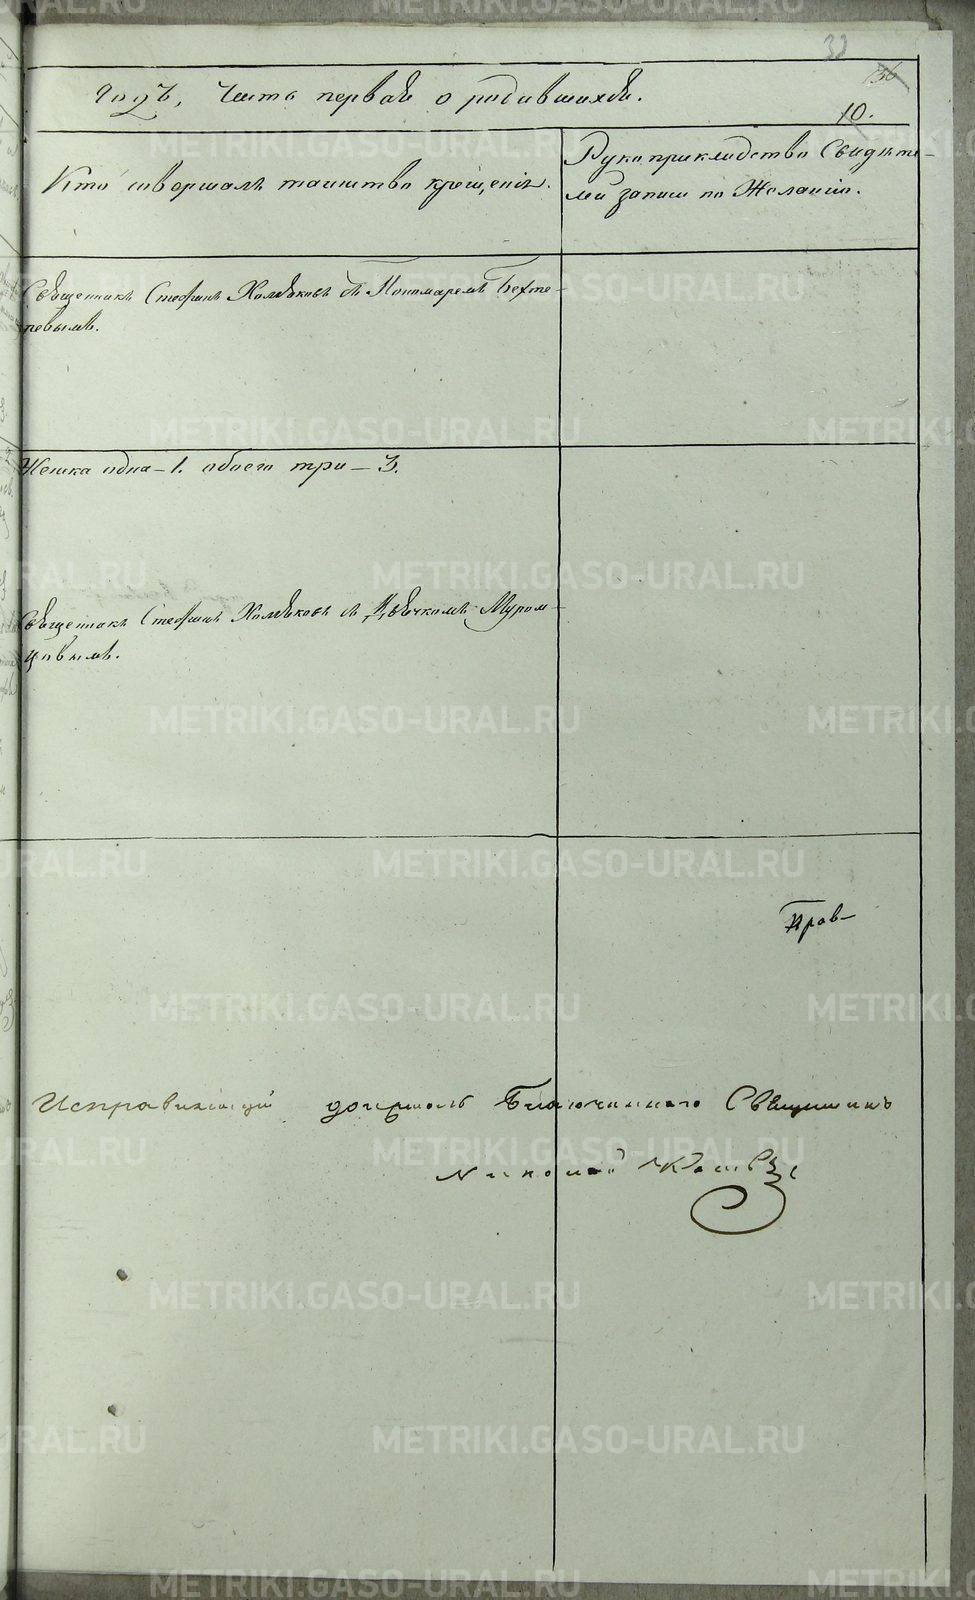 32
36
10.
Годъ, Часть первая о родившихся.
Кто совершалъ таинство крещенія.
Рукоприкладство Свидѣте-
лей записи по Желанію.
Священникъ Стефанъ Холвѣковъ съ Пономаремъ Бехте-
ревымъ.
Женска одна - 1. обоего три - 3.
Священникъ Стефанъ Холвѣковъ съ Дьячкомъ Муром-
цовымъ.
Исправляющій должность Благочиннаго Священникъ
Николай
METRIKI.GASO-URAL.RU